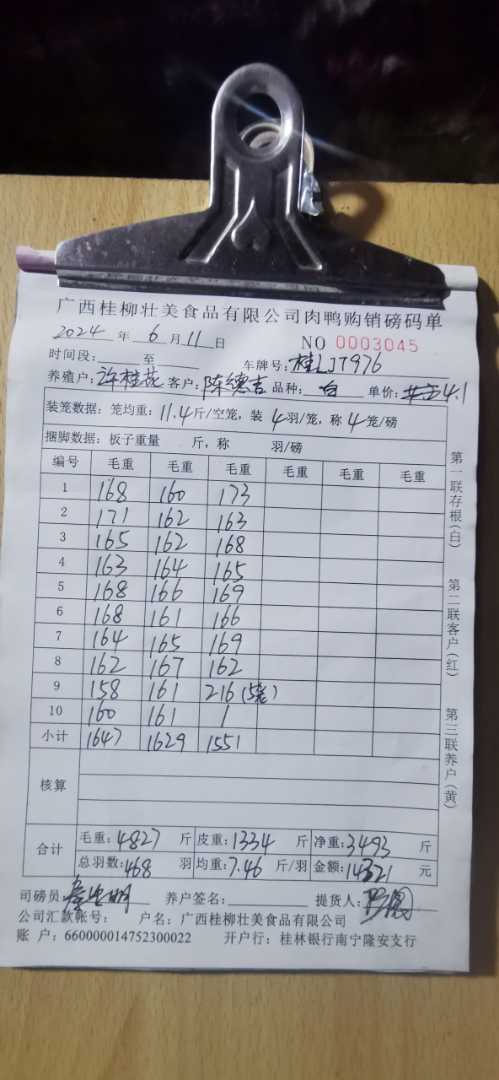 广西桂柳壮美食品有限公司肉鸭购销磅码单
2024 年 6 月 11 日 NO 0003045
时间段: 至 车牌号: 桂LJT976
养殖户: 许桂花 客户: 陈德吉 品种: 白 单价: 4.1
装笼数据: 笼均重: 11.4 斤/空笼, 装 4 羽/笼, 称 4 笼/磅
捆脚数据: 板子重量 斤, 称 羽/磅
编号 毛重 毛重 毛重 毛重 毛重 毛重
1 168 160 173
2 171 162 163
3 165 162 168
4 163 164 165
5 168 166 169
6 168 161 166
7 164 165 169
8 162 167 162
9 158 161 216
10 160 161 /
小计 1647 1629 1551
核算
合计 毛重: 4827 斤 皮重: 1334 斤 净重: 3493 斤
总羽数: 468 羽 均重: 7.46 斤/羽 金额: 14321 元
司磅员 养户签名: 提货人:
公司汇款帐号: 户名: 广西桂柳壮美食品有限公司
账 户: 660000014752300022 开户行: 桂林银行南宁隆安支行
第一联存根(白)
第二联客户(红)
第三联养户(黄)